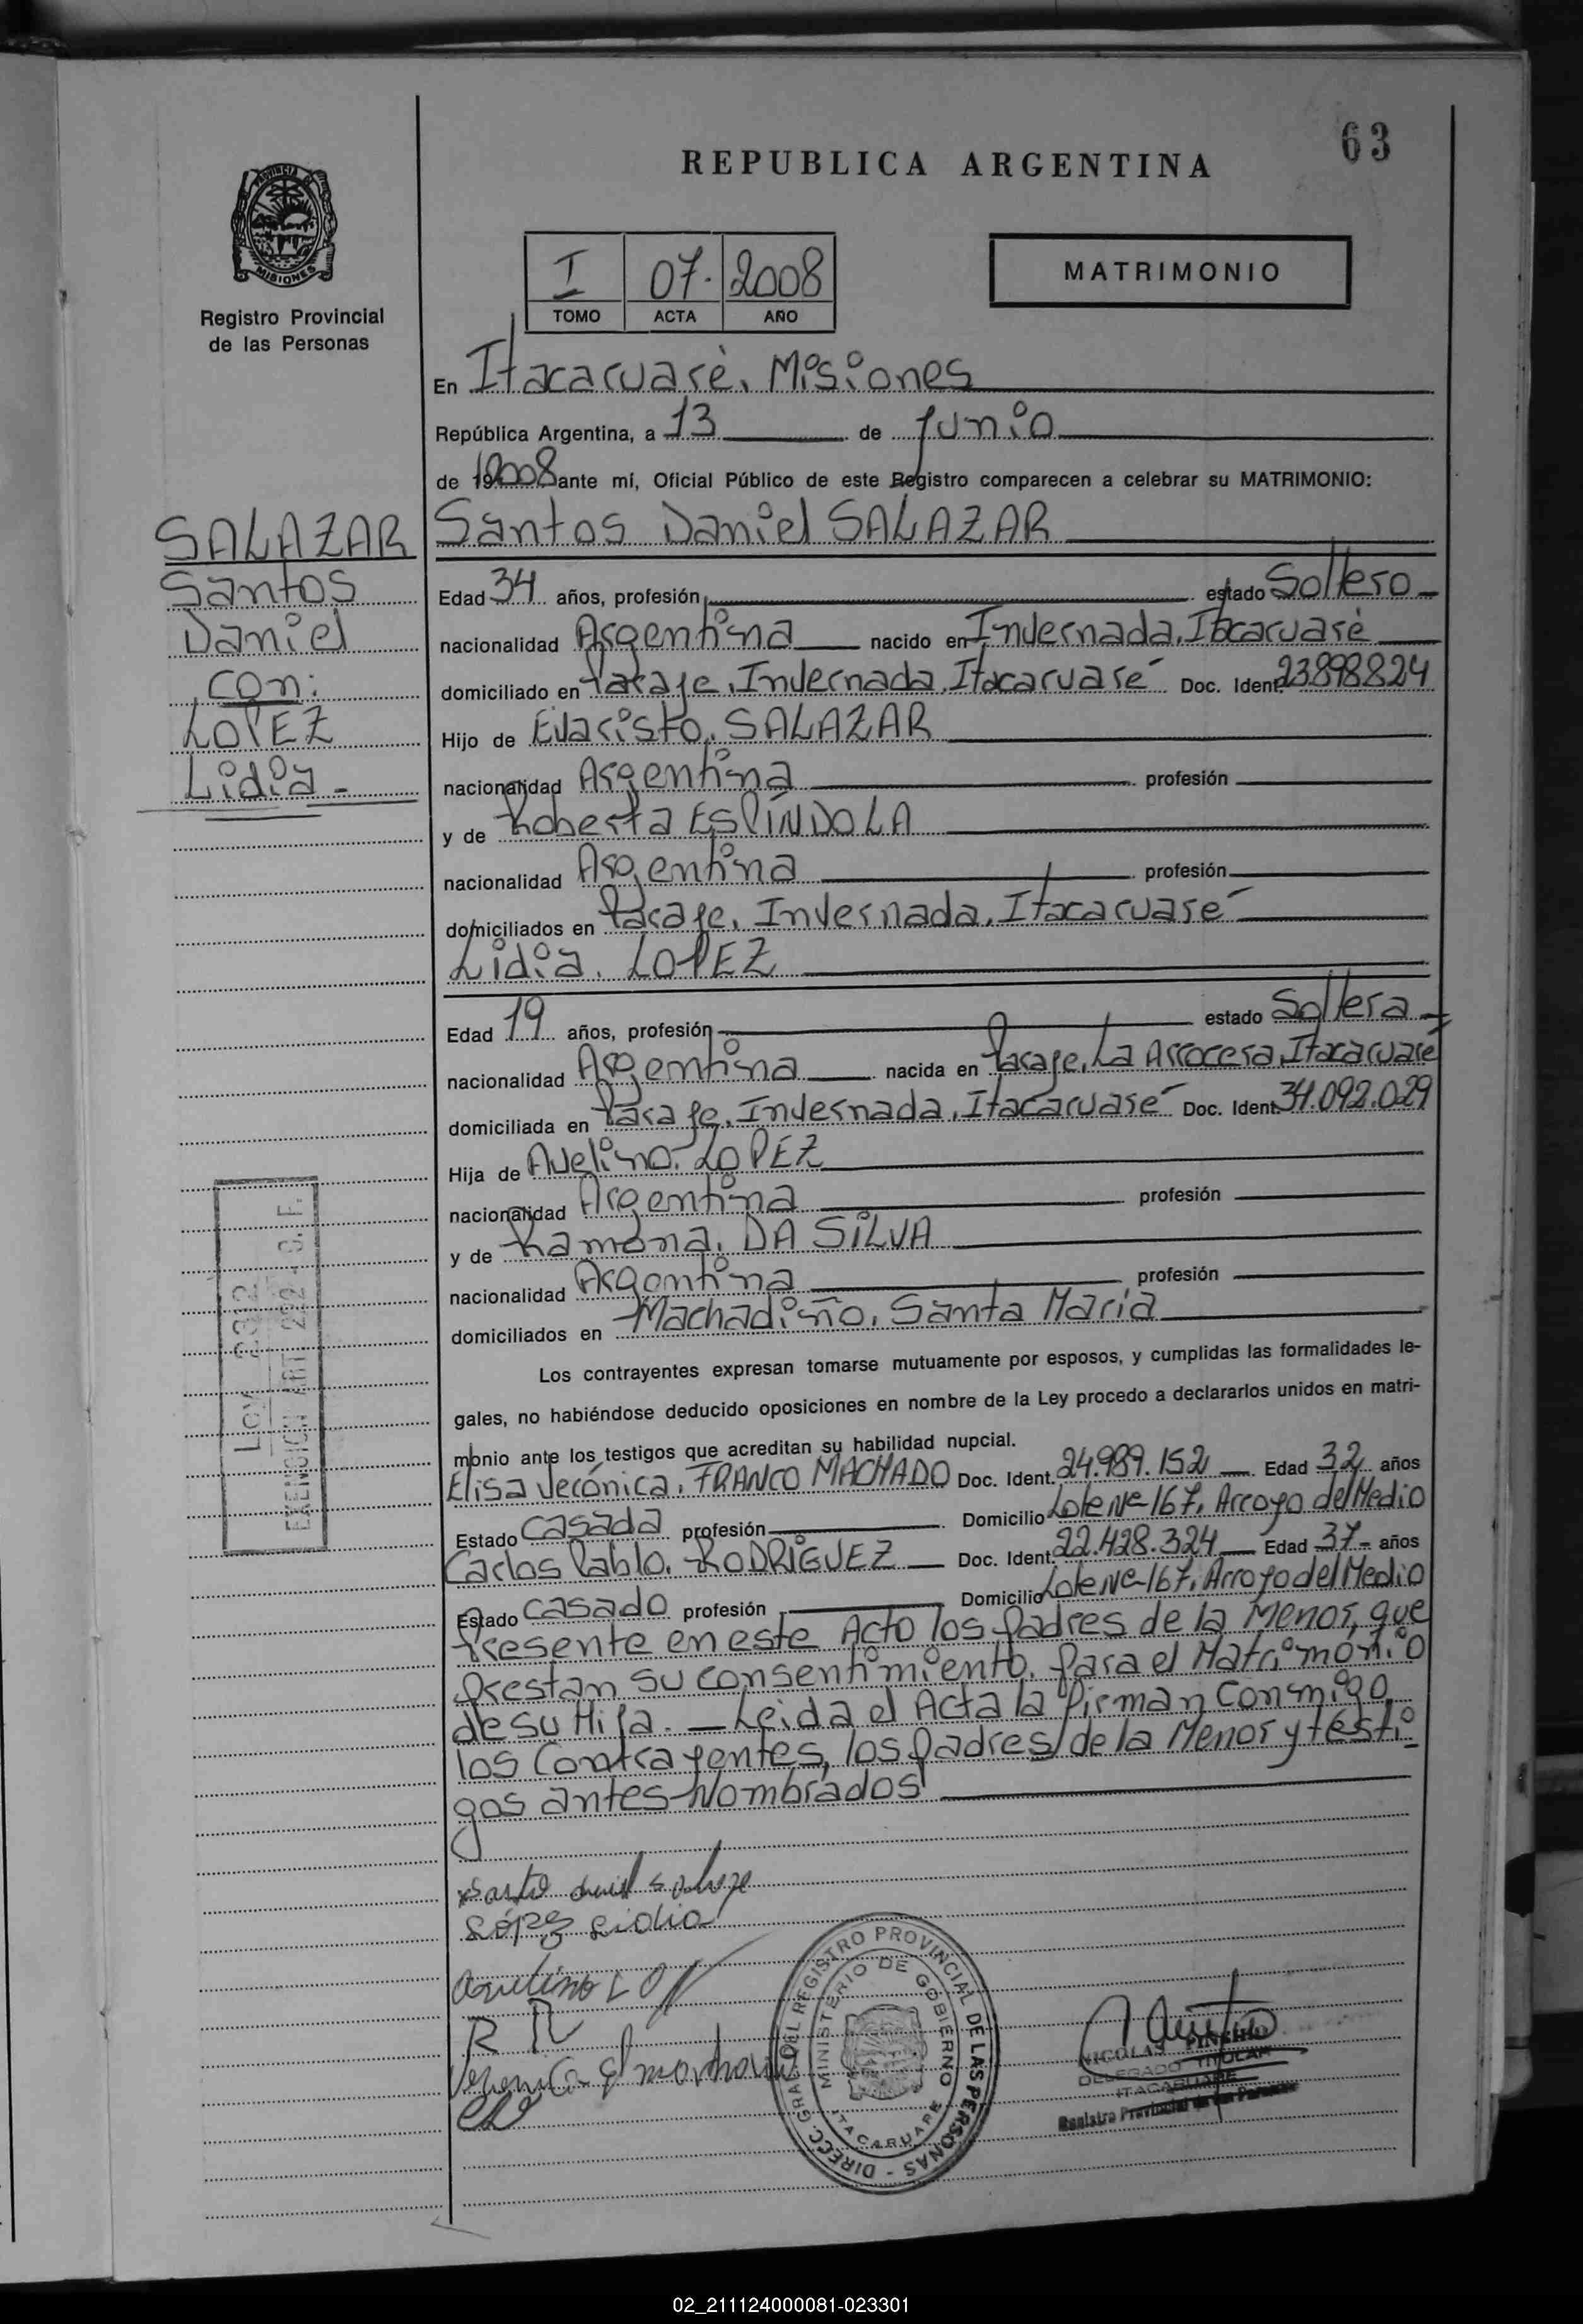 63
REPUBLICA ARGENTINA
PROVINCIA DE MISIONES
Registro Provincial
de las Personas
I 07. 2008
TOMO ACTA AÑO
MATRIMONIO
En Itacaruarè, Misiones
República Argentina, a 13 de junio
de 192008 ante mí, Oficial Público de este Registro comparecen a celebrar su MATRIMONIO:
SALAZAR
Santos
Daniel
con:
LOPEZ
Lidia -
Santos Daniel SALAZAR
Edad 34 años, profesión estado Soltero
nacionalidad Argentina nacido en Invernada, Itacaruaré
domiciliado en Paraje, Invernada, Itacaruaré Doc. Ident. 23898824
Hijo de Evaristo, SALAZAR
nacionalidad Argentina profesión
y de Roberta ESPÍNDOLA
nacionalidad Argentina profesión
domiciliados en Paraje, Invernada, Itacaruaré
Lidia, LOPEZ
Edad 19 años, profesión estado Soltera
nacionalidad Argentina nacida en Paraje, La Arrocera, Itacaruaré
domiciliada en Paraje, Invernada, Itacaruaré Doc. Ident. 34.092.029
Hija de Avelino. LOPEZ
nacionalidad Argentina profesión
y de Ramona, DA SILVA
nacionalidad Argentina profesión
domiciliados en Machadiño, Santa María
Los contrayentes expresan tomarse mutuamente por esposos, y cumplidas las formalidades le-
gales, no habiéndose deducido oposiciones en nombre de la Ley procedo a declararlos unidos en matri-
monio ante los testigos que acreditan su habilidad nupcial.
Elisa Verónica, FRANCO MACHADO Doc. Ident. 24.989.152 Edad 32 años
Estado Casada profesión Domicilio Lote Nº 167, Arroyo del Medio
Carlos Pablo, RODRÍGUEZ Doc. Ident. 22.428.324 Edad 37 años
Estado Casado profesión Domicilio Lote Nº 167, Arroyo del Medio
Presente en este Acto los padres de la Menor, que
prestan su consentimiento, para el Matrimonio
de su Hija. — Leida el Acta la firman conmigo,
los Contrayentes, los padres de la Menor y testi-
gos antes Nombrados
Ley 2312
EXENCION ART. 222
López Lidia
DIRECC. GRAL DEL REGISTRO PROVINCIAL DE LAS PERSONAS -
MINISTERIO DE GOBIERNO
ITACARUARE
NICOLAS PINEIRO
DELEGADO TITULAR
ITACARUARE
Registro Provincial de las Personas
02_211124000081-023301